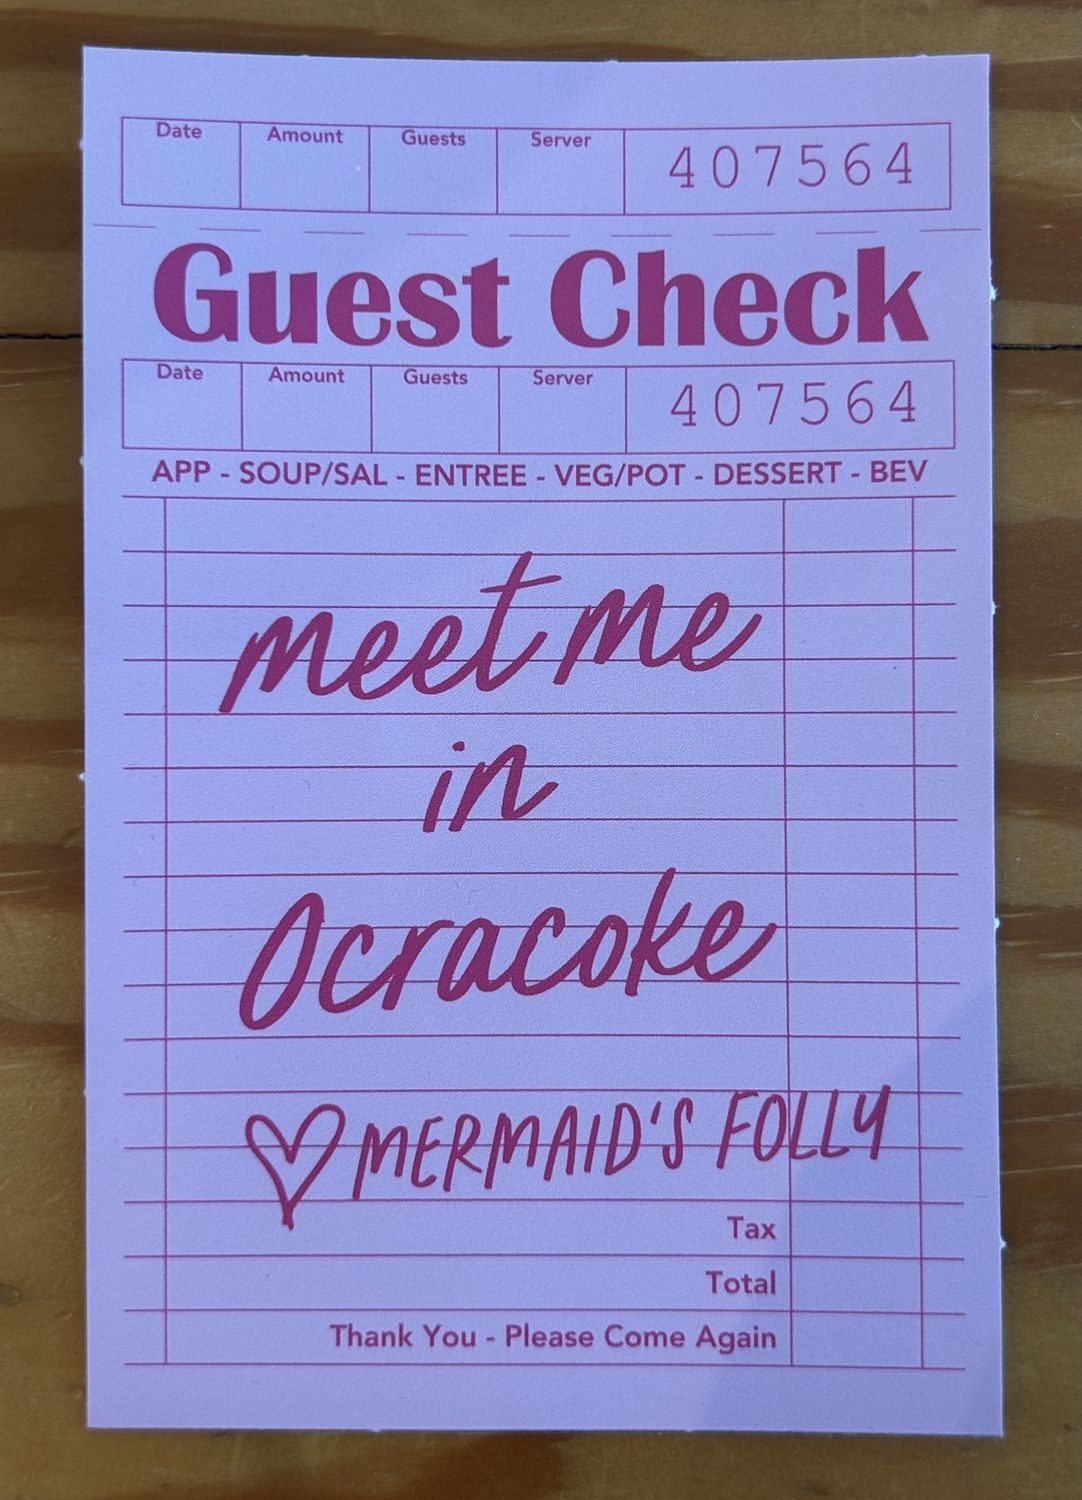 Date Amount Guests Server 407564
Guest Check
Date Amount Guests Server 407564
APP - SOUP/SAL - ENTREE - VEG/POT - DESSERT - BEV
meet me
in
Ocracoke
♡ MERMAID'S FOLLY
Tax
Total
Thank You - Please Come Again